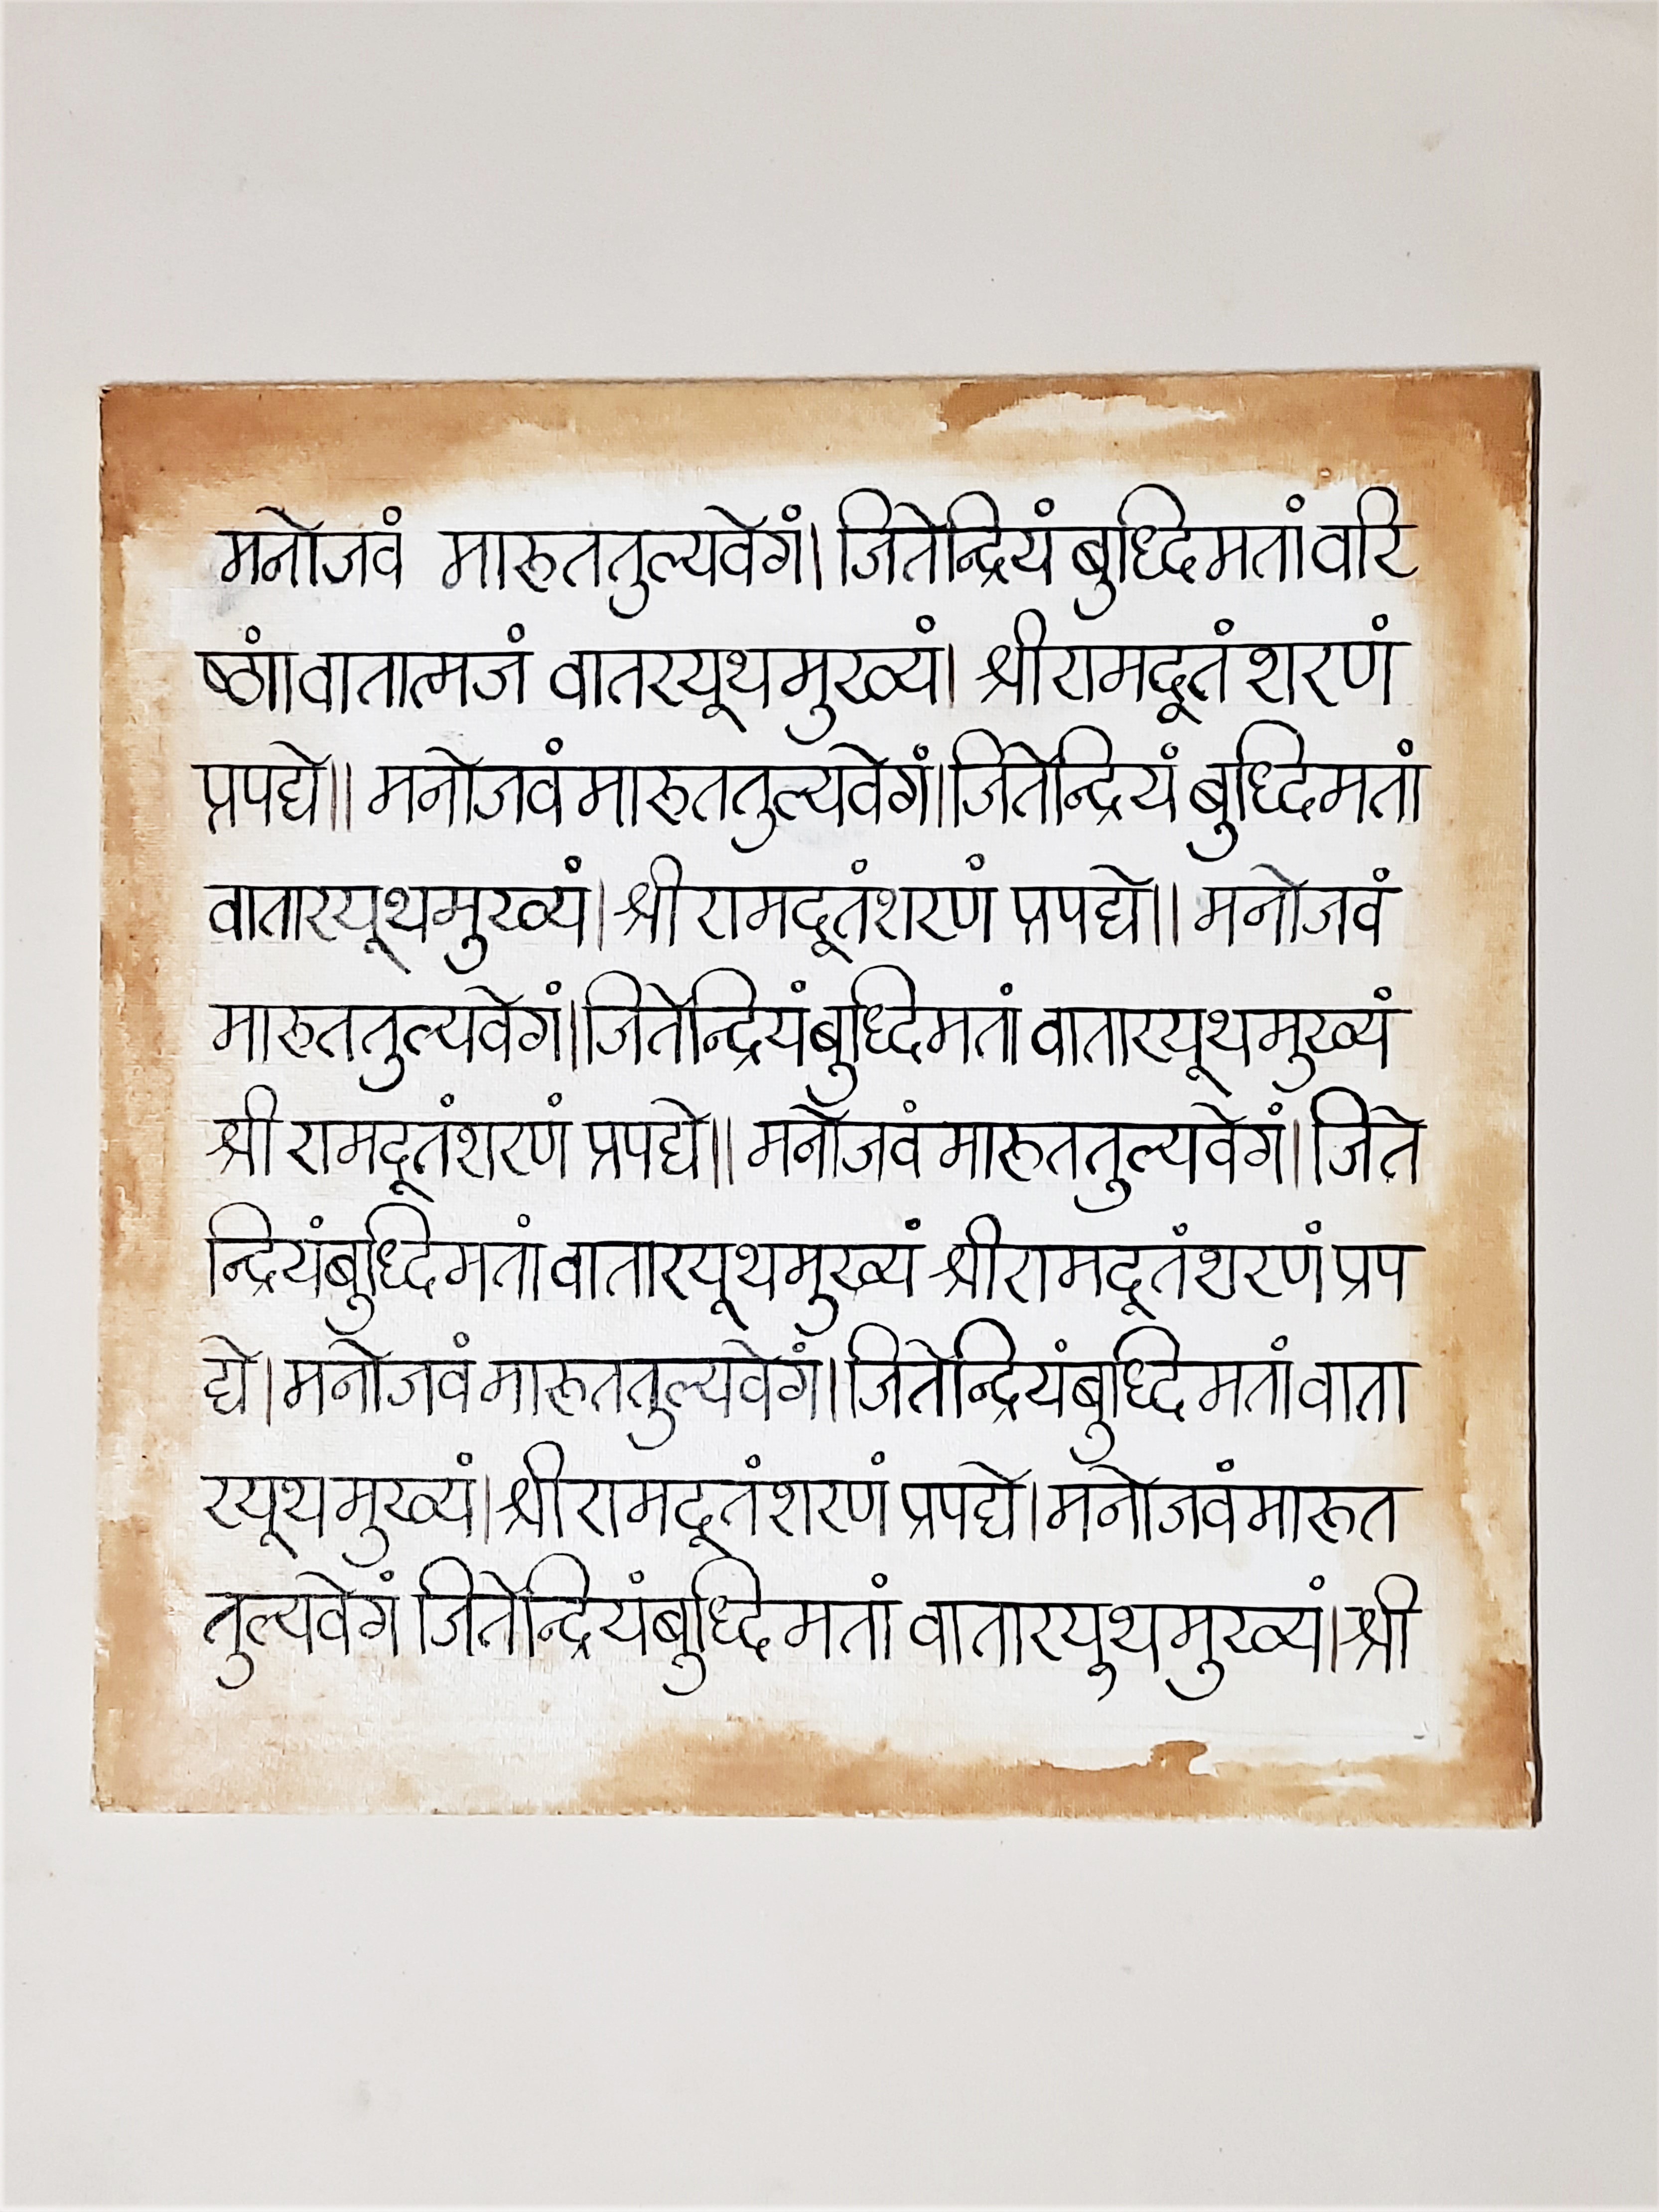 मनोजवं मारुततुल्यवेगं। जितेन्द्रियं बुध्दिमतां वरि
ष्ठां। वातात्मजं वातरयूथमुख्यं। श्री रामदूतं शरणं
प्रपद्ये॥ मनोजवं मारुततुल्यवेगं। जितेन्द्रियं बुध्दिमतां
वातारयूथमुख्यं। श्री रामदूतं शरणं प्रपद्ये॥ मनोजवं
मारुततुल्यवेगं। जितेन्द्रियं बुध्दिमतां वातारयूथमुख्यं
श्री रामदूतं शरणं प्रपद्ये॥ मनोजवं मारुततुल्यवेगं। जिते
न्द्रियं बुध्दिमतां वातारयूथमुख्यं श्री रामदूतं शरणं प्रप
द्ये। मनोजवं मारुततुल्यवेगं। जितेन्द्रियं बुध्दिमतां वाता
रयूथमुख्यं। श्री रामदूतं शरणं प्रपद्ये। मनोजवं मारुत
तुल्यवेगं जितेन्द्रियं बुध्दिमतां वातारयुथमुख्यं। श्री